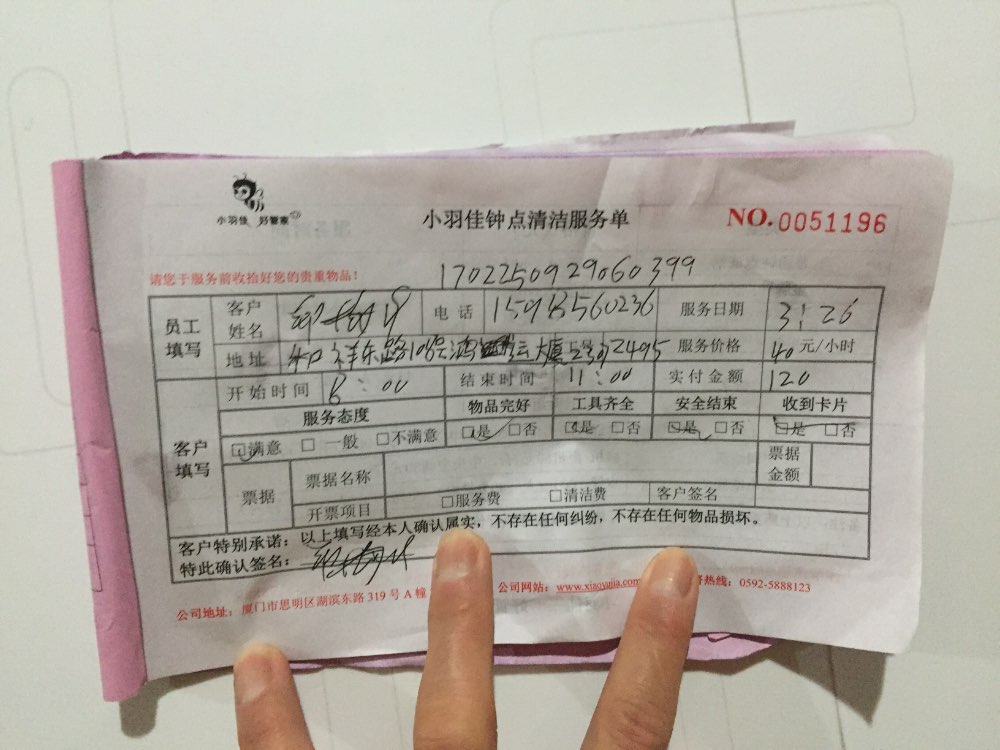 小羽佳 好管家
小羽佳钟点清洁服务单
NO.0051196
请您于服务前收拾好您的贵重物品!
1702250929060399
员工填写
客户姓名
电话 服务日期 3:26
地址 服务价格 40元/小时
开始时间 8:00 结束时间 11:00 实付金额 120
客户填写
服务态度 物品完好 工具齐全 安全结束 收到卡片
☑满意 □一般 □不满意 ☑是 □否 ☑是 □否 ☑是 □否 ☑是 □否
票据 票据名称 票据金额
开票项目 □服务费 □清洁费 客户签名
客户特别承诺:以上填写经本人确认属实,不存在任何纠纷,不存在任何物品损坏。
特此确认签名:
公司地址:厦门市思明区湖滨东路319号A幢 公司网站:www.xiaoyujia.com 热线:0592-5888123